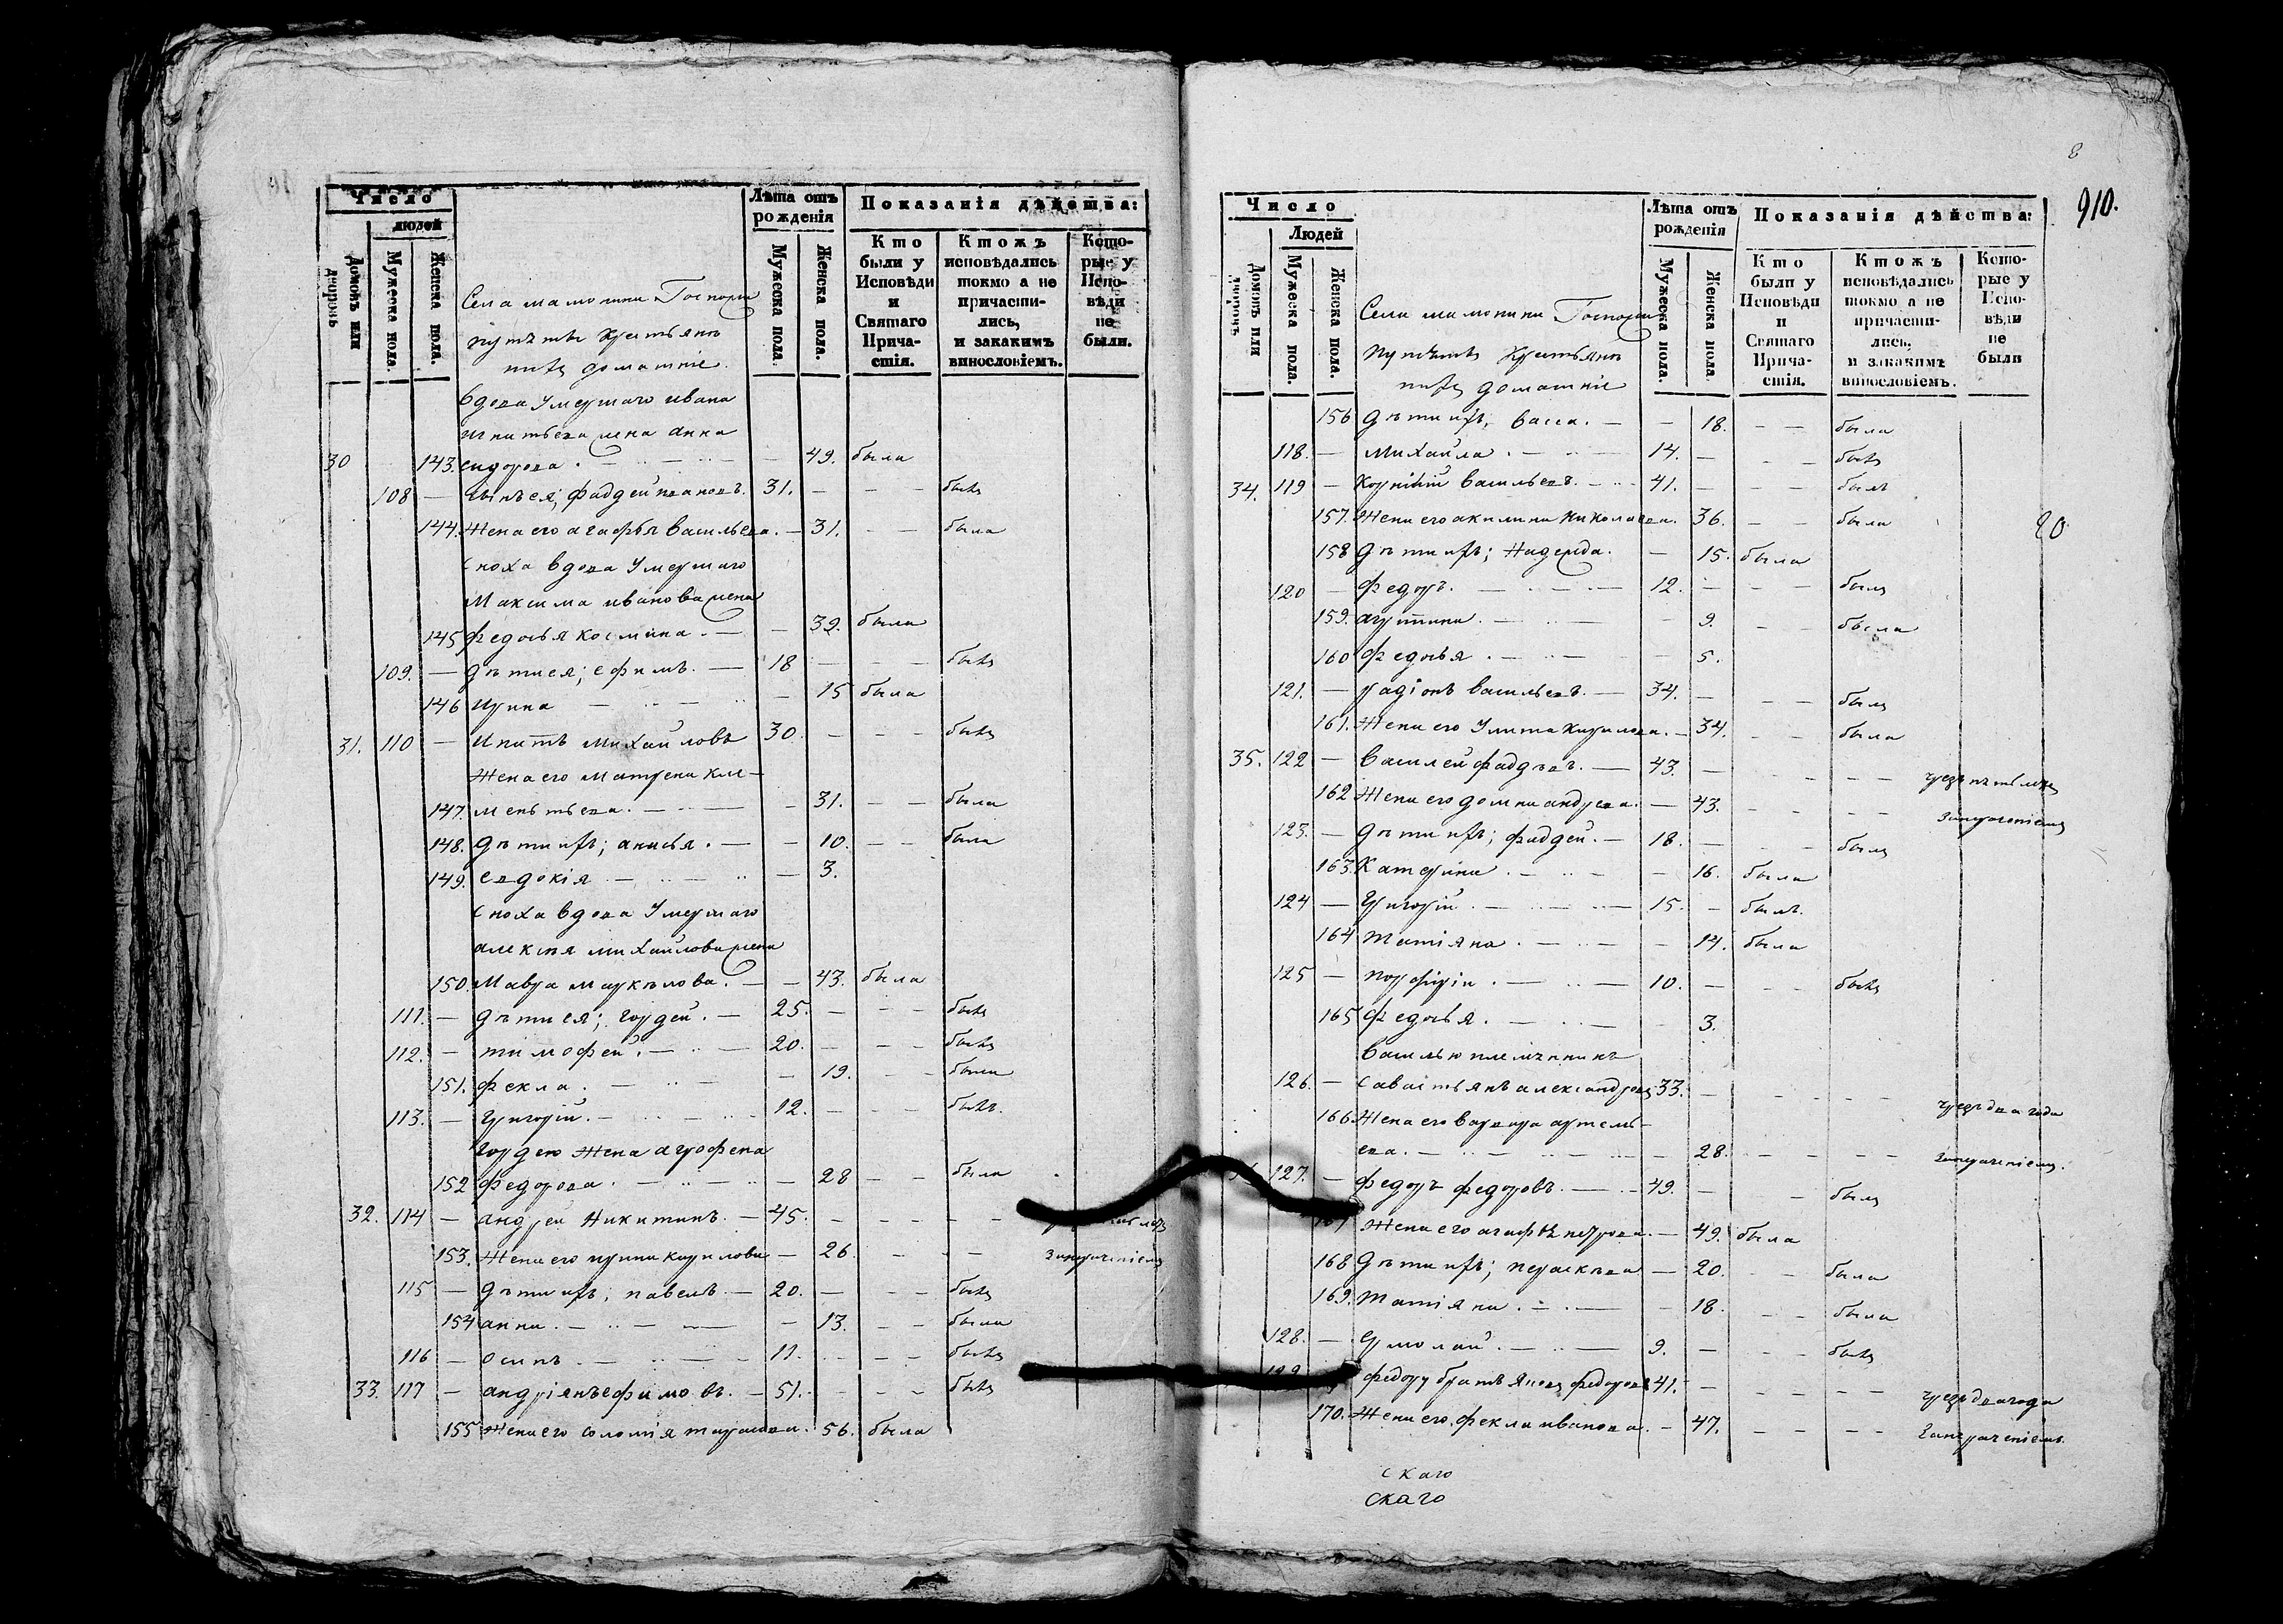 Число
Людей
Домовъ или дворовъ
Мужеска пола.
Женска пола.
Лѣта отъ рожденія
Мужеска пола
Женска пола.
Показанія дѣйства:
Кто были у Исповѣди и Святаго Прича-стія.
Ктожъ исповѣдались токмо а не причасти-лись, и закакимъ винословіемъ.
Кото-рые у Испо-вѣди не были.
Села
крестьянъ
ихъ домашніе
вдова умершаго ивана
игнатьева жена анна
30 143. сидорова. 49. была
108 сынъ ея, фаддей ивановъ. 31. былъ
144. Жена его агафья васильева. 31. была
сноха вдова умершаго
Максима иванова жена
145 федосья космина. 39. была
109. дѣти ея; ефимъ. 18 былъ
146 ирина 15 была
31. 110 Ипатъ михайловъ 30 былъ
Жена его матрена кле-
147. ментьева. 31. была
148. дѣти ихъ; анисья. 10. была
149. евдокія 3.
сноха вдова умершаго
алексѣя михайлова жена
150. Мавра маркелова. 43. была
111. дѣти ея; гордей. 25. былъ
112. тимофей. 20. былъ
151. фекла. 19. была
113. григорій. 12. былъ.
гордею Жена агрофена
152 федорова. 28 была
32. 114 андрей Никитинъ. 45.
153. Жена его ирина кирилова 26.
115 дѣти ихъ; павелъ. 20. былъ
154 анна. 13. была
116 осипъ. 11. былъ
33. 117 андріянъ ефимовъ. 51. былъ
155 Жена его соломія тарасова. 56. была
8
910.
Число
Людей
Домовъ или дворовъ
Мужеска пола.
Женска пола.
Лѣта отъ рожденія
Мужеска пола.
Женска пола.
Показанія дѣйства:
Кто были у Исповѣди и Святаго Прича-стія.
Ктожъ исповѣдались токмо а не причасти-лись, и закакимъ винословіемъ.
Кото-рые у Испо-вѣди не были
Села
крестьянъ
ихъ домашніе
156 дѣти ихъ, васса. 18. была
118. Михайла. 14. былъ
34. 119 васильевъ. 41. былъ
157. Жена его акилина Николаева. 36. была
20
158 дѣти ихъ; Надежда. 15. была
120 федоръ. 12. былъ
159. 9. была
160 федосья. 5.
121. радіонъ васильевъ. 34. былъ
161. Жена его Улита кирилова. 34. была
35. 122 василей фадѣевъ. 43.
162 Жена его домна андреева. 43.
123. дѣти ихъ; фаддей. 18. былъ
163. Катерина. 16. была
124 Григорій. 15. былъ.
164 татіяна. 14. была
125 порфирій. 10. былъ
165 федосья. 3.
василью племянникъ
126. савастьянъ александровъ 33. чрезъ два года
166. Жена его варвара артемь-
ева. 28.
127. федоръ федоровъ. 49. былъ
Жена его агафья петрова. 49. была
168 дѣти ихъ; 20. была
169. татіяна. 18. была
128. ермолай. 9. былъ
федору братъ яковъ федоровъ 41. чрезъ два года
170. Жена его фекла иванова. 47.
скаго
скаго